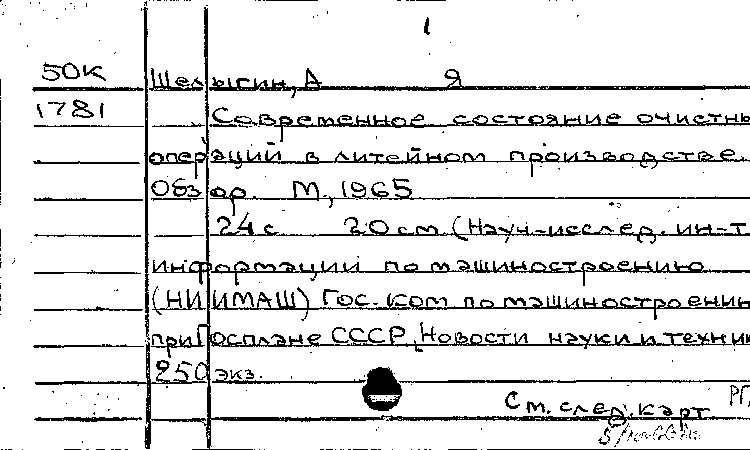 1
50К Шелыгин, А Я
1781 Современное состояние очистны
операций в литейном производстве.
Обзор. М., 1965
24 с 20 см. (Науч-исслед. ин-т
информации по машиностроению
(НИИМАШ) Гос. ком по машиностроению
при Госплане СССР. Новости науки и техник
250 экз.
См. след. карт
РГ